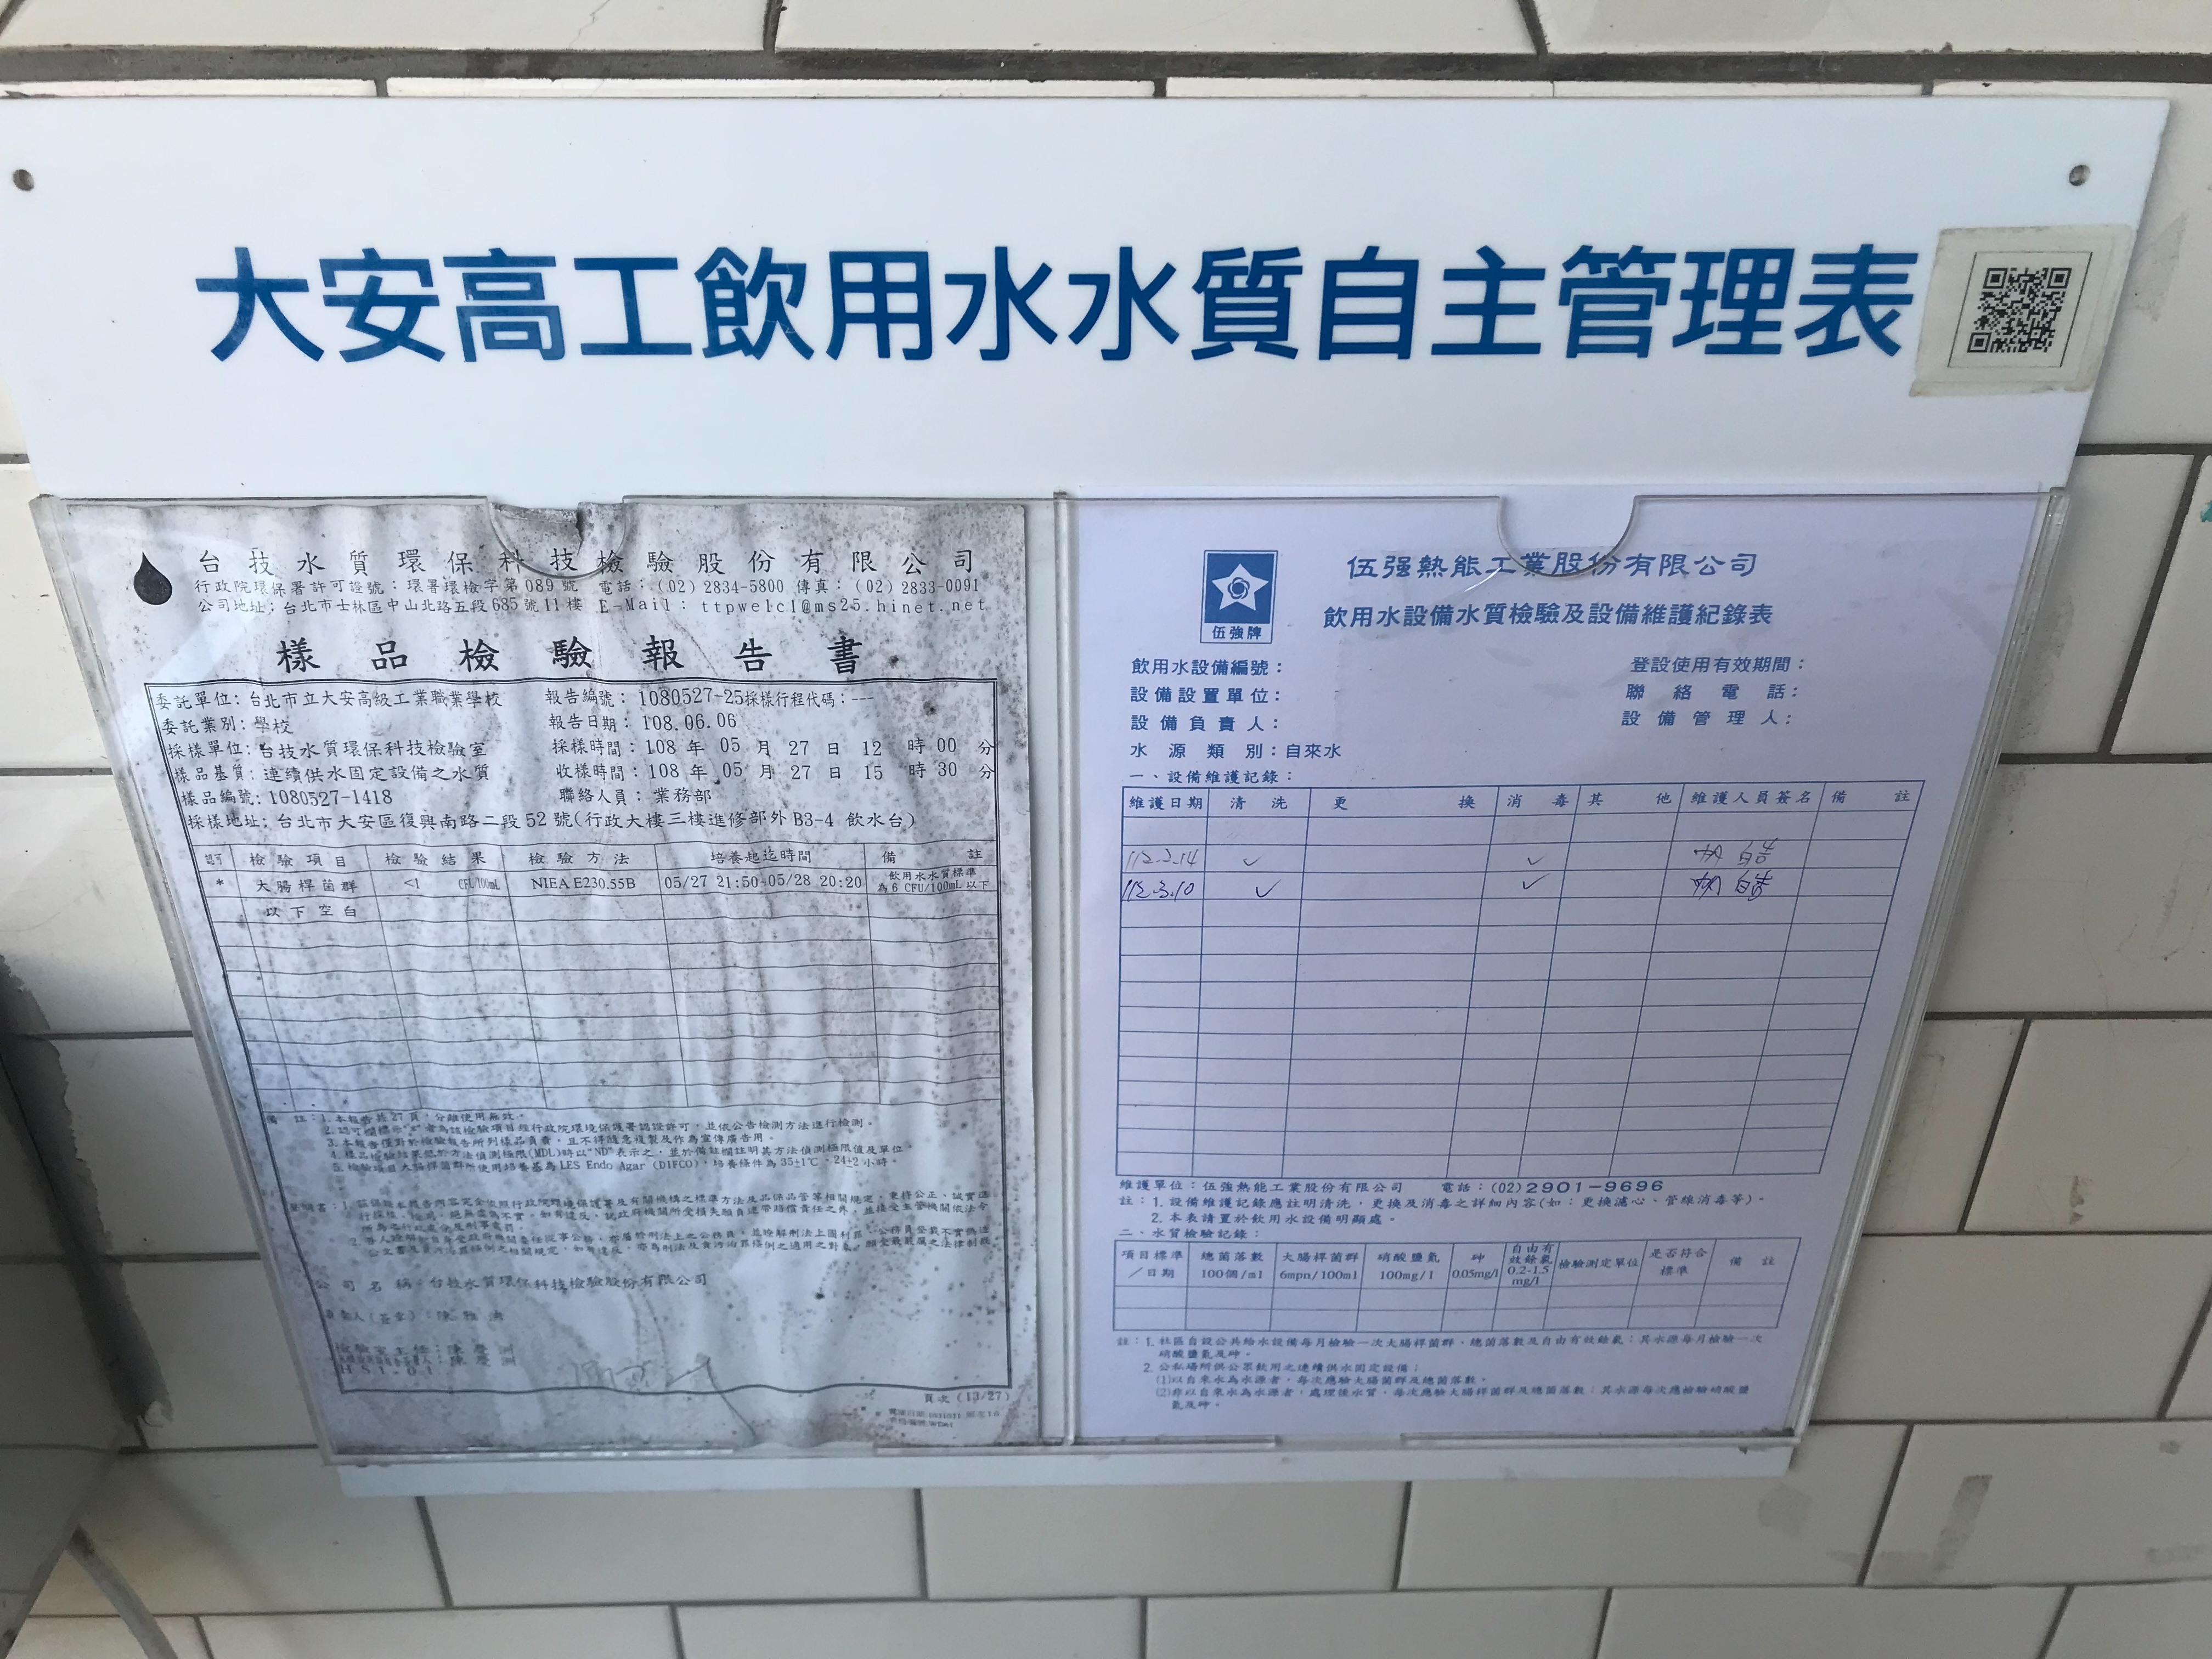 大安高工飲用水水質自主管理表
台技水質環保科技檢驗股份有限公司
行政院環保署許可證號：環署環檢字第089號 電話：(02) 2834-5800 傳真：(02) 2833-0091
公司地址：台北市士林區中山北路五段685號11樓 E-Mail：ttpwelcl@ms25.hinet.net
樣品檢驗報告書
委託單位：台北市立大安高級工業職業學校 報告編號：1080527-25採樣行程代碼：---
委託業別：學校 報告日期：108.06.06
採樣單位：台技水質環保科技檢驗室 採樣時間：108 年 05 月 27 日 12 時 00 分
樣品基質：連續供水固定設備之水質 收樣時間：108 年 05 月 27 日 15 時 30 分
樣品編號：1080527-1418 聯絡人員：業務部
採樣地址：台北市大安區復興南路二段52號(行政大樓三樓進修部外B3-4 飲水台)
認可 檢驗項目 檢驗結果 檢驗方法 培養起迄時間 備註
* 大腸桿菌群 <1 CFU/100mL NIEA E230.55B 05/27 21:50~05/28 20:20 飲用水水質標準為6 CFU/100mL以下
以下空白
備註：1.本報告共27頁，分離使用無效。
2.認可欄標示"*"者為該檢驗項目經行政院環境保護署認證許可，並依公告檢測方法進行檢測。
3.本報告僅對於檢驗報告所列樣品負責，且不得隨意複製及作為宣傳廣告用。
4.樣品檢驗結果低於方法偵測極限(MDL)時以"ND"表示之，並於備註欄註明其方法偵測極限值及單位。
5.檢驗項目大腸桿菌群所使用培養基為LES Endo Agar (DIFCO)，培養條件為35±1℃、24±2小時。
公司名稱：台技水質環保科技檢驗股份有限公司
頁次 (13/27)
伍強牌
伍強熱能工業股份有限公司
飲用水設備水質檢驗及設備維護紀錄表
飲用水設備編號： 登設使用有效期間：
設備設置單位： 聯絡電話：
設備負責人： 設備管理人：
水源類別：自來水
一、設備維護記錄：
維護日期 清洗 更換 消毒 其他 維護人員簽名 備註
112.2.14 ✓ ✓
112.3.10 ✓ ✓
維護單位：伍強熱能工業股份有限公司 電話：(02)2901-9696
註：1.設備維護記錄應註明清洗，更換及消毒之詳細內容(如：更換濾心、管線消毒等)。
2.本表請置於飲用水設備明顯處。
二、水質檢驗記錄：
項目標準／日期 總菌落數100個/ml 大腸桿菌群6mpn/100ml 硝酸鹽氮100mg/l 砷0.05mg/l 自由有效餘氯0.2-1.5mg/l 檢驗測定單位 是否符合標準 備註
註：1.社區自設公共給水設備每月檢驗一次大腸桿菌群、總菌落數及自由有效餘氯；其水源每月檢驗一次
硝酸鹽氮及砷。
2.公私場所供公眾飲用之連續供水固定設備；
(1)以自來水為水源者，每次應驗大腸桿菌群及總菌落數。
(2)非以自來水為水源者，處理後水質，每次應驗大腸桿菌群及總菌落數；其水源每次應檢驗硝酸鹽
氮及砷。